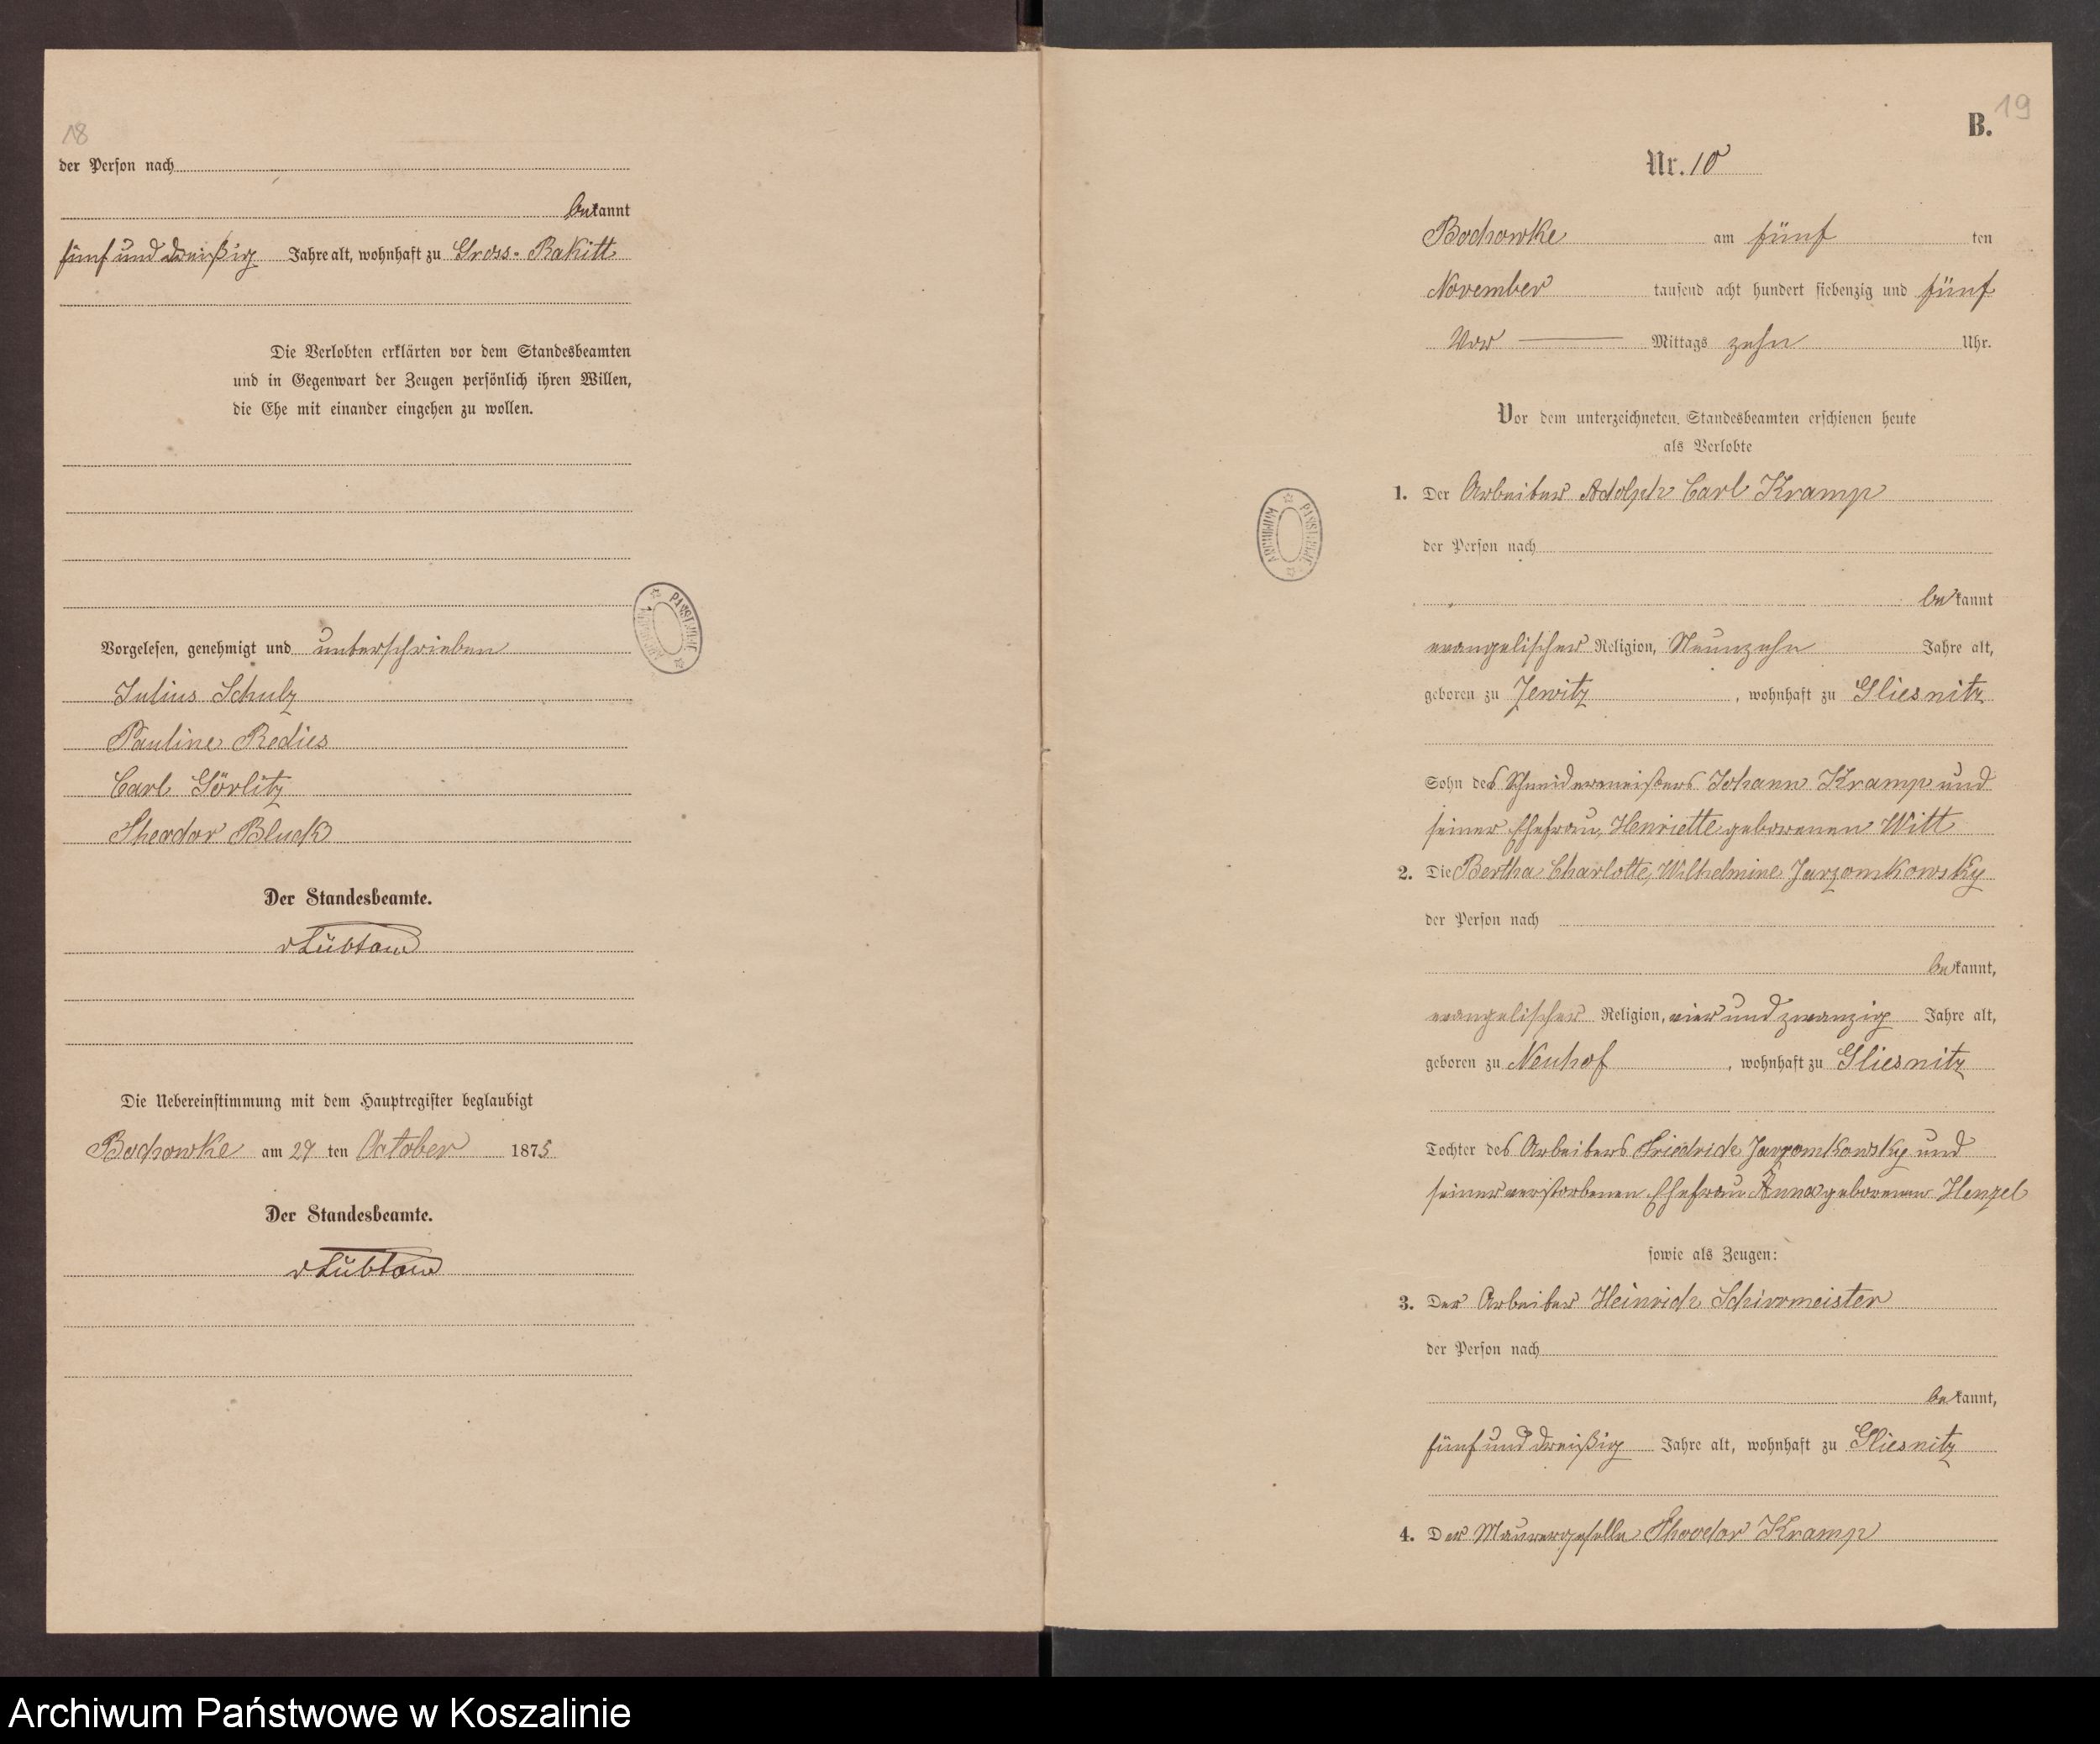 18
der Person nach
bekannt
fünf und dreißig Jahre alt, wohnhaft zu Gross-Rakitt
Die Verlobten erklärten vor dem Standesbeamten
und in Gegenwart der Zeugen persönlich ihren Willen,
die Ehe mit einander eingehen zu wollen.
Vorgelesen, genehmigt und unterschrieben
Julius Schulz
Pauline Redies
Carl Görlitz
Theodor Bluck
Der Standesbeamte.
vLübtow
Die Uebereinstimmung mit dem Hauptregister beglaubigt
Bochowke am 29 ten October 1875
Der Standesbeamte.
vLübtow
ARCHIWUM PAŃSTWOWE
19
B.
Nr. 10
Bochowke am fünf ten
November tausend acht hundert siebenzig und fünf
Vor Mittags zehn Uhr.
Vor dem unterzeichneten Standesbeamten erschienen heute
als Verlobte
1. Der Arbeiter Adolph Carl Kramp
der Person nach
bekannt
evangelischer Religion, Neunzehn Jahre alt,
geboren zu Jewitz, wohnhaft zu Gliesnitz
Sohn des Schneidermeisters Johann Kramp und
seiner Ehefrau, Henriette geborenen Witt
2. Die Bertha Charlotte, Wilhelmine Jarzomkowsky
der Person nach
bekannt,
evangelischer Religion, vier und zwanzig Jahre alt,
geboren zu Neuhof, wohnhaft zu Gliesnitz
Tochter des Arbeiters Friedrich Jarzomkowsky und
seiner verstorbenen Ehefrau Anna geborenen Henzel
sowie als Zeugen:
3. Der Arbeiter Heinrich Schirrmeister
der Person nach
bekannt,
fünf und dreißig Jahre alt, wohnhaft zu Gliesnitz
4. Der Maurergeselle Theodor Kramp
ARCHIWUM PAŃSTWOWE
Archiwum Państwowe w Koszalinie